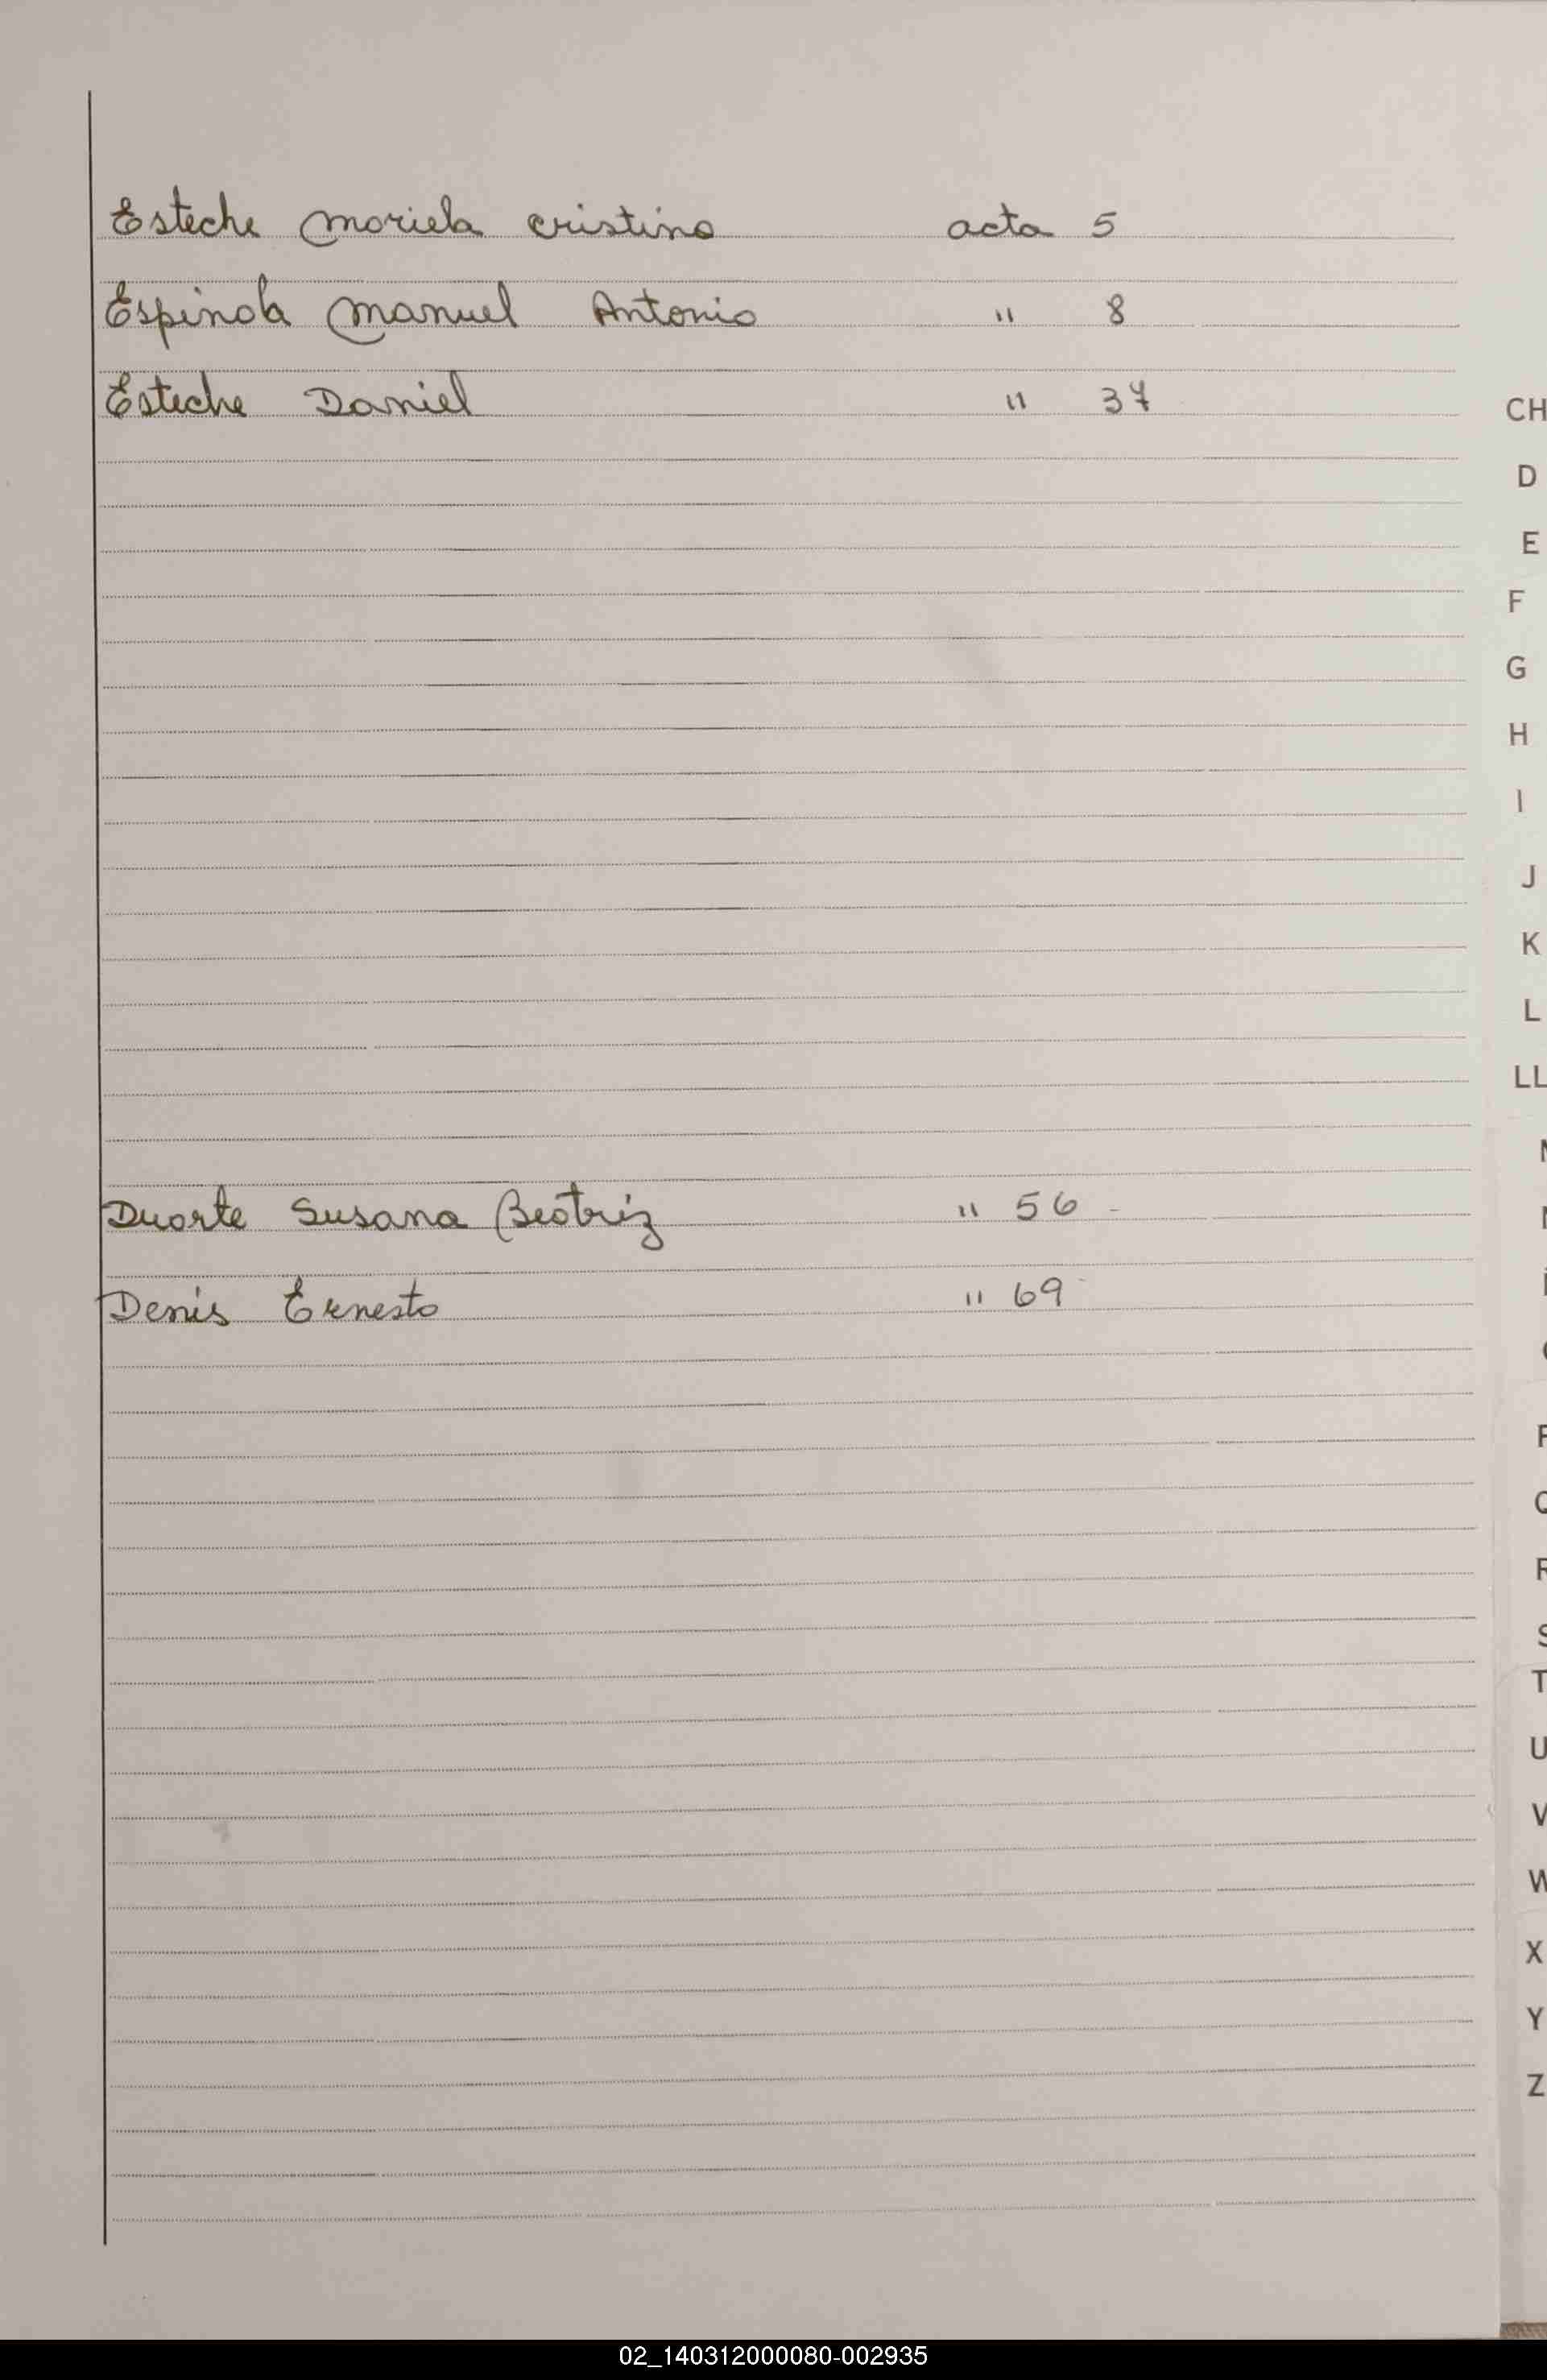 Esteche Mariela cristina acta 5
Espinola Manuel Antonio " 8
Esteche Daniel " 37
CH
D
E
F
G
H
I
J
K
L
LL
Duarte Susana Beatriz " 56 -
Denis Ernesto " 69
Q
R
S
T
U
V
W
X
Y
Z
02_140312000080-002935